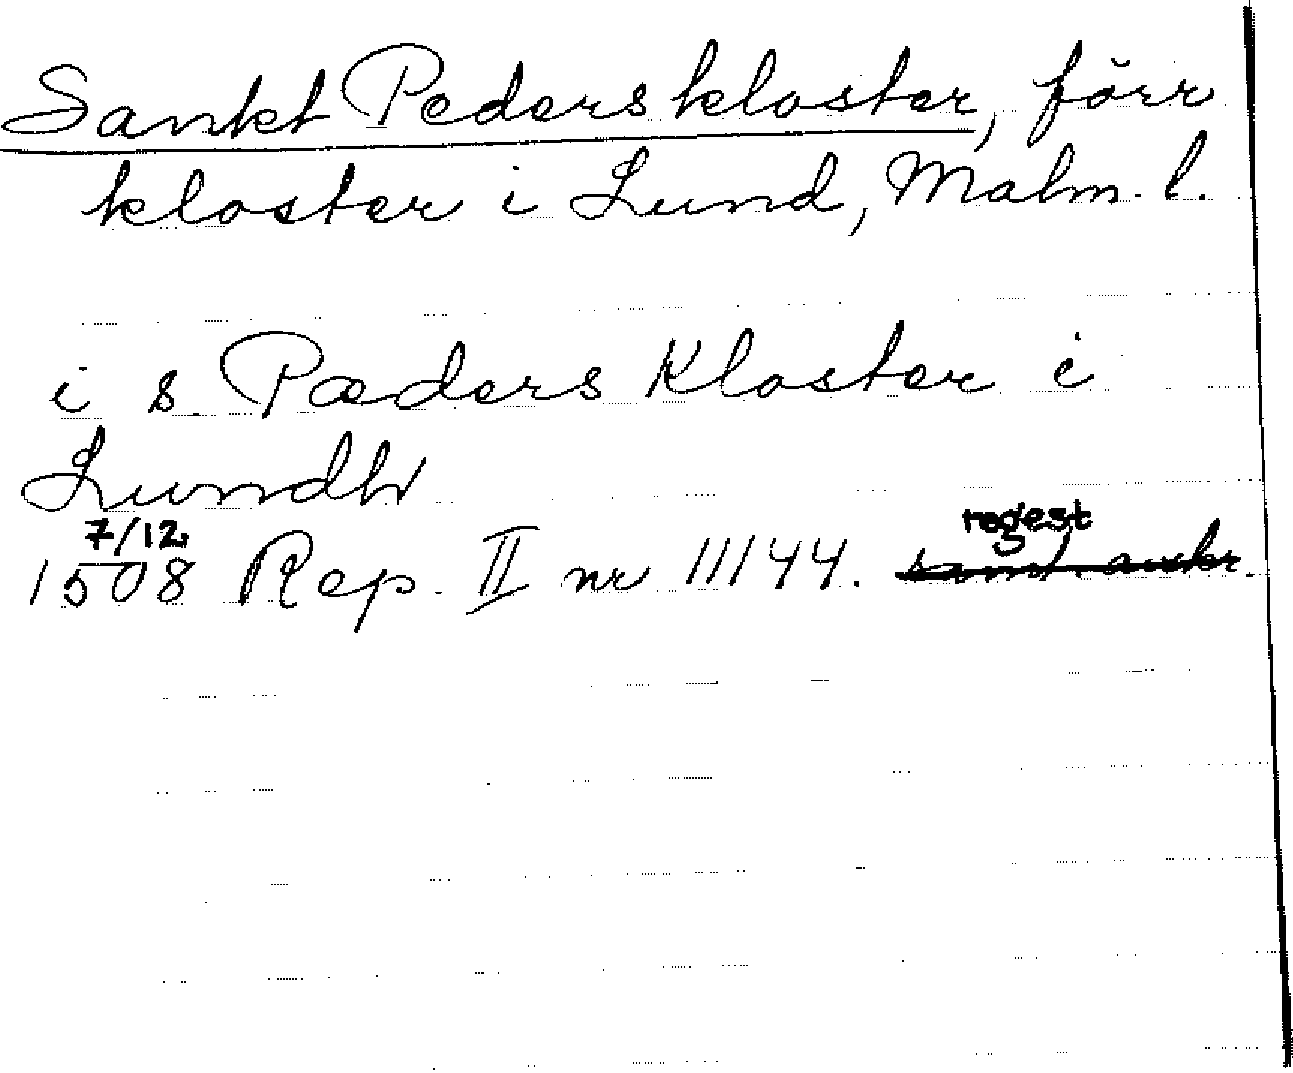 Sankt Peders kloster, förr
kloster i Lund, Malm. l.
i s. Pæders Kloster i
Lundh
7/12 regest
1508 Rep. II nr 11144.